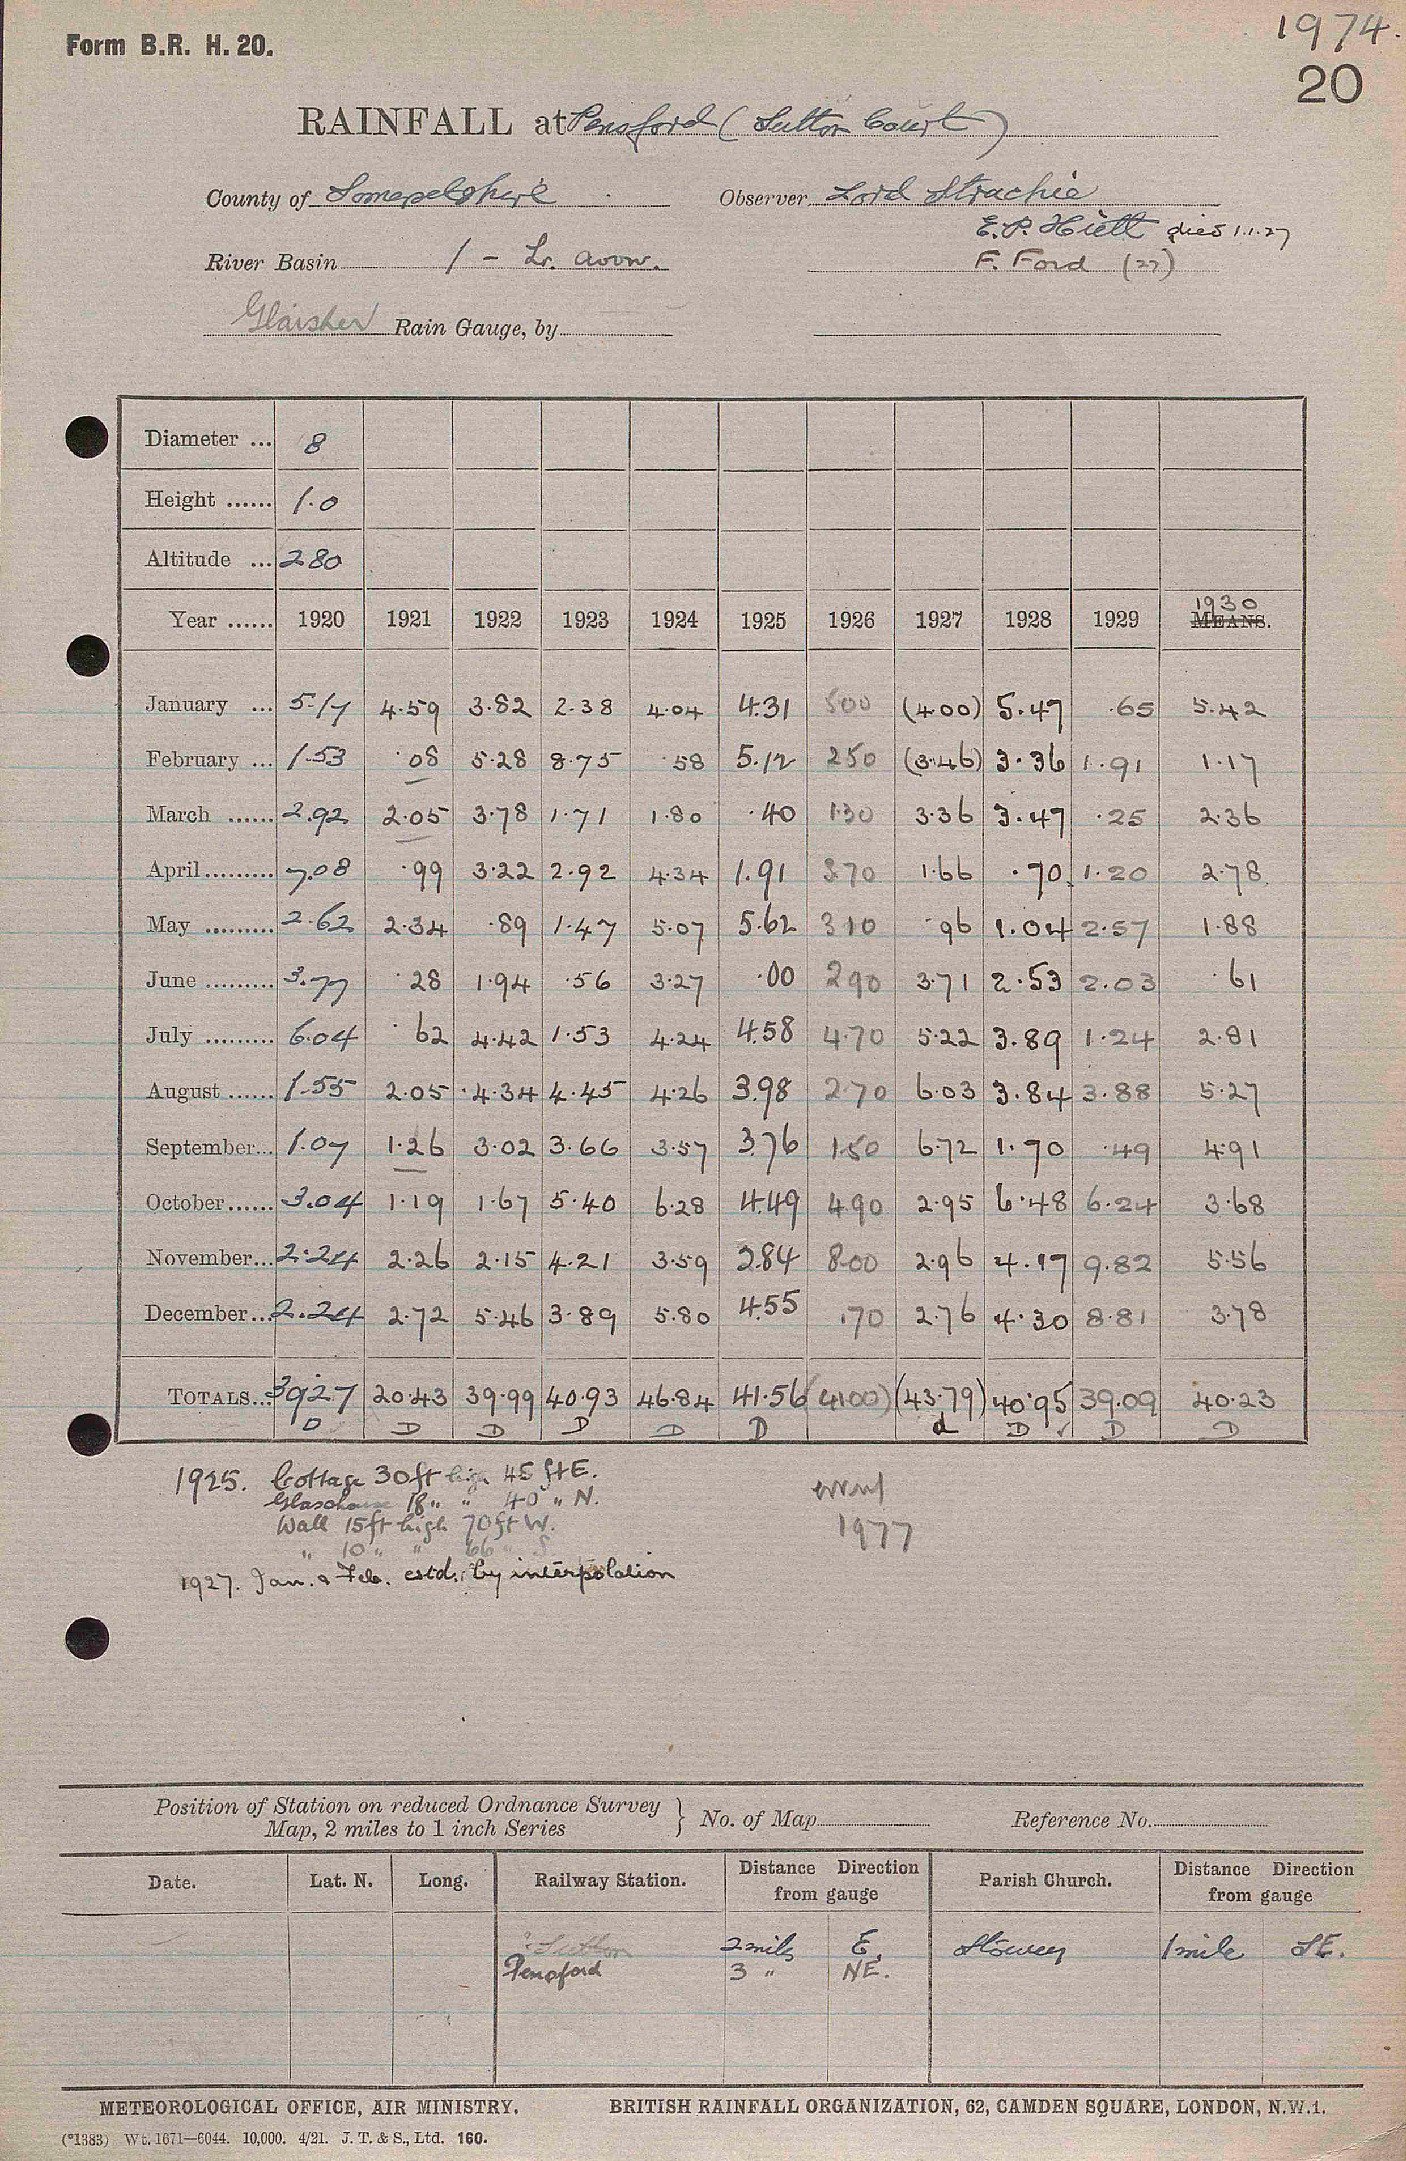 1974.
Form B.R. H. 20.
20
RAINFALL at Pensford (Sutton Court)
County of Somersetshire Observer Lord Strachie
E. P. Hiett died 1.1.27
River Basin 1 - Lr. Avon. F. Ford (27)
Glaisher Rain Gauge, by
Diameter ... 8
Height ...... 1.0
Altitude ... 280
1930
Year ...... 1920 1921 1922 1923 1924 1925 1926 1927 1928 1929 MEANS.
January ... 5.17 4.59 3.82 2.38 4.04 4.31 500 (4.00) 5.47 .65 5.42
February ... 1.53 .08 5.28 8.75 .58 5.12 250 (3.46) 3.36 1.91 1.17
March ...... 2.92 2.05 3.78 1.71 1.80 .40 1.30 3.36 3.47 .25 2.36
April ......... 7.08 .99 3.22 2.92 4.34 1.91 370 1.66 .70 1.20 2.78
May ......... 2.62 2.34 .89 1.47 5.07 5.62 310 .96 1.04 2.57 1.88
June ......... 3.77 .28 1.94 .56 3.27 .00 290 3.71 2.53 2.03 .61
July ......... 6.04 .62 4.42 1.53 4.24 4.58 4.70 5.22 3.89 1.24 2.81
August ...... 1.55 2.05 4.34 4.45 4.26 3.98 2.70 6.03 3.84 3.88 5.27
September... 1.07 1.26 3.02 3.66 3.57 3.76 1.50 6.72 1.70 .49 4.91
October...... 3.04 1.19 1.67 5.40 6.28 4.49 4.90 2.95 6.48 6.24 3.68
November... 2.24 2.26 2.15 4.21 3.59 2.84 8.00 2.96 4.17 9.82 5.56
December... 2.24 2.72 5.46 3.89 5.80 4.55 .70 2.76 4.30 8.81 3.78
TOTALS... 39.27 20.43 39.99 40.93 46.84 41.56 (41.00) (43.79) 40.95 39.09 40.23
D D D D D D d D ✓ D D
1925. Cottage 30ft high 45 ft E.
Glasshouse 18 " " 40 " N.
Wall 15ft high 70ft W.
" 10 " " 66 " S
1977
1927. Jan. & Feb. estd. by interpolation
Position of Station on reduced Ordnance Survey
Map, 2 miles to 1 inch Series } No. of Map Reference No.
Date. Lat. N. Long. Railway Station. Distance Direction from gauge Parish Church. Distance Direction from gauge
? Sutton 2 mils E, Stowey 1 mile SE.
Pensford 3 " NE.
METEOROLOGICAL OFFICE, AIR MINISTRY. BRITISH RAINFALL ORGANIZATION, 62, CAMDEN SQUARE, LONDON, N.W.1.
(*1383) Wt. 1671—6044. 10,000. 4/21. J. T. & S., Ltd. 160.